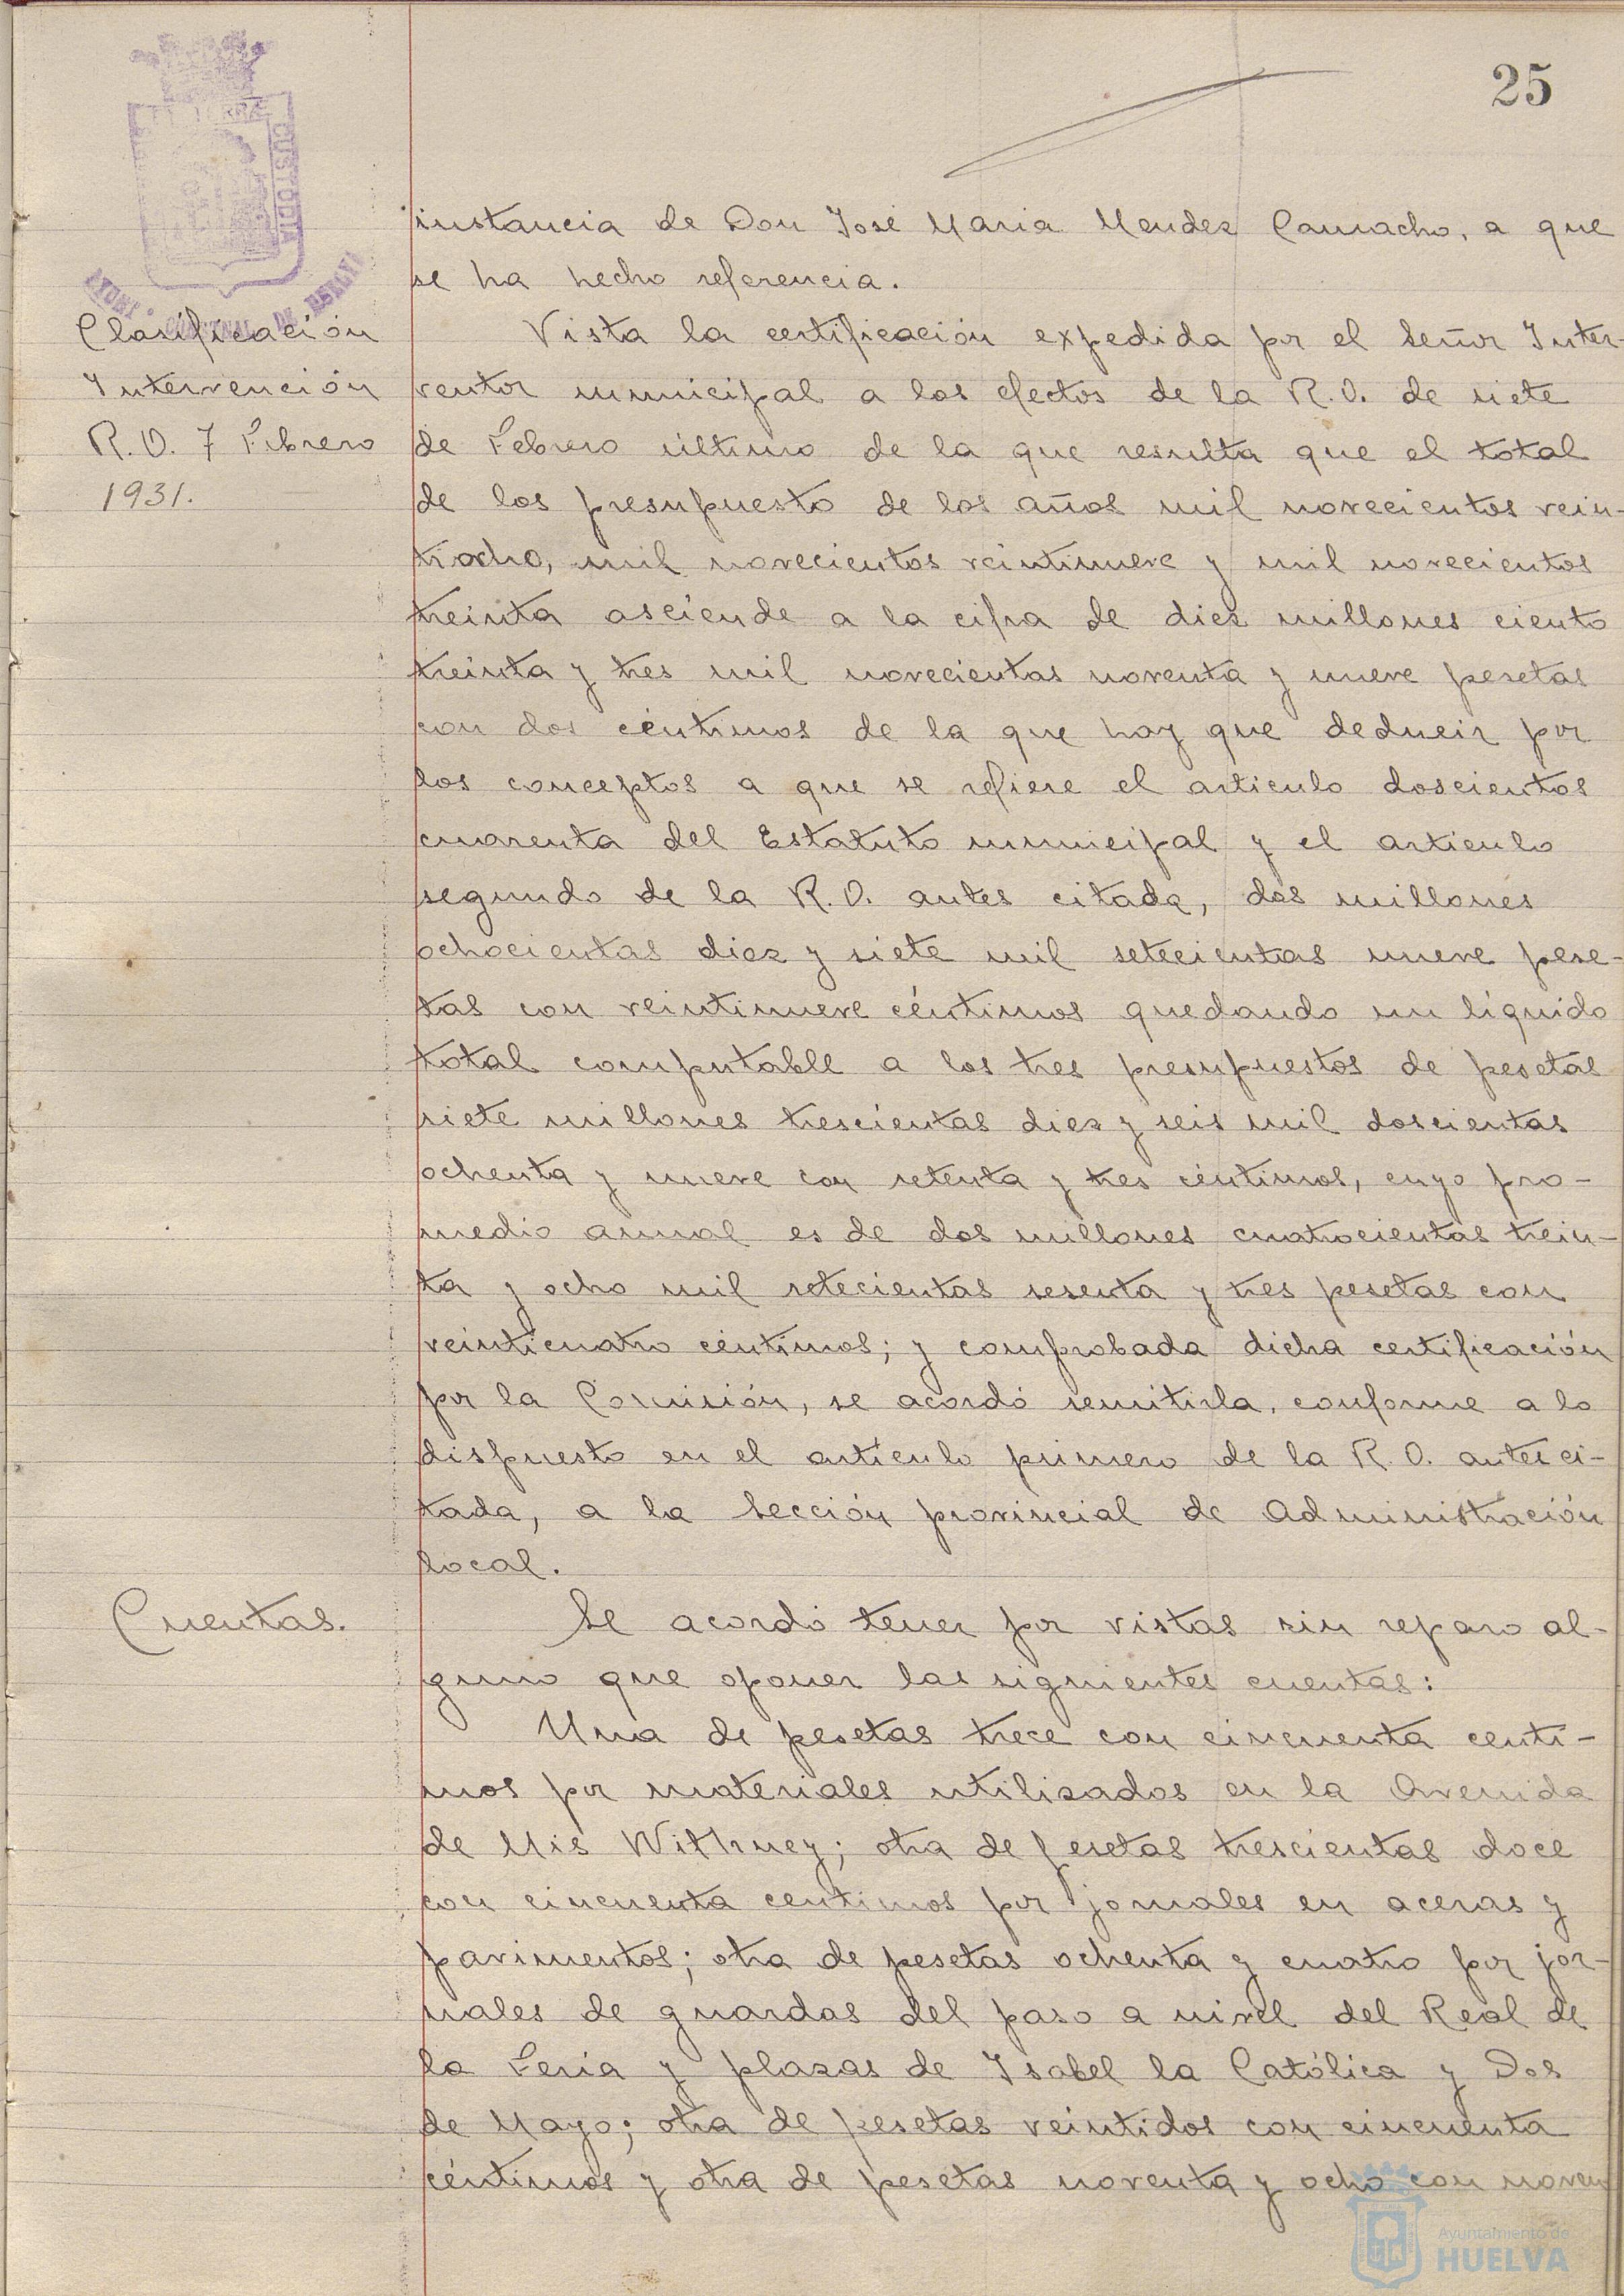 25
instancia de Don José Maria Mendez Camacho, a que
se ha hecho referencia.
Clasificación
Intervención
R.O. 7 Febrero
1931.
Vista la certificación expedida por el Señor Inter-
ventor municipal a los efectos de la R.O. de siete
de Febrero último de la que resulta que el total
de los presupuesto de los años mil novecientos vein-
tiocho, mil novecientos veintinueve y mil novecientos
treinta asciende a la cifra de diez millones ciento
treinta y tres mil novecientas noventa y nueve pesetas
con dos céntimos de la que hay que deducir por
los conceptos a que se refiere el articulo doscientos
cuarenta del Estatuto municipal y el articulo
segundo de la R.O. antes citada, dos millones
ochocientas diez y siete mil setecientas nueve pese-
tas con veintinueve céntimos quedando un líquido
total computable a los tres presupuestos de pesetas
siete millones trescientas diez y seis mil doscientas
ochenta y nueve con setenta y tres céntimos, cuyo pro-
medio annual es de dos millones cuatrocientas trein-
ta y ocho mil setecientas sesenta y tres pesetas con
veinticuatro céntimos; y comprobada dicha certificación
por la Comisión, se acordó remitirla, conforme a lo
dispuesto en el artículo primero de la R.O. antes ci-
tada, a la Sección provincial de Administración
local.
Cuentas.
Se acordó tener por vistas sin reparo al-
guno que oponer las siguientes cuentas:
Una de pesetas trece con cincuenta centi-
mos por materiales utilizados en la Avenida
de Mis Withney; otra de pesetas trescientas doce
con cincuenta centimos por jornales en aceras y
pavimentos; otra de pesetas ochenta y cuatro por jor-
nales de guardas del paso a nivel del Real de
la Feria y plazas de Isabel la Católica y Dos
de Mayo; otra de pesetas veintidos con cincuenta
céntimos y otra de pesetas noventa y ocho con noven
Ayuntamiento de
HUELVA